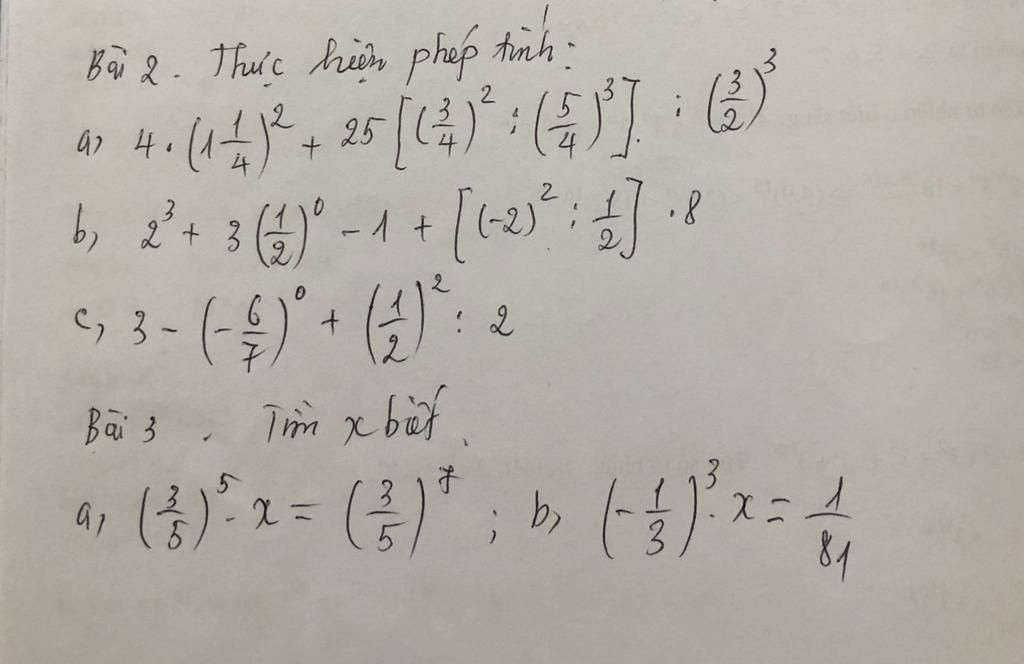 Bài 2. Thực hiện phép tính:
a, 4 . (1 1/4)^2 + 25 [(3/4)^2 : (5/4)^3] : (3/2)^3
b, 2^3 + 3 (1/2)^0 - 1 + [(-2)^2 : 1/2] . 8
c, 3 - (-6/7)^0 + (1/2)^2 : 2
Bài 3. Tìm x biết.
a, (3/5)^5 . x = (3/5)^7 ; b, (-1/3)^3 . x = 1/81